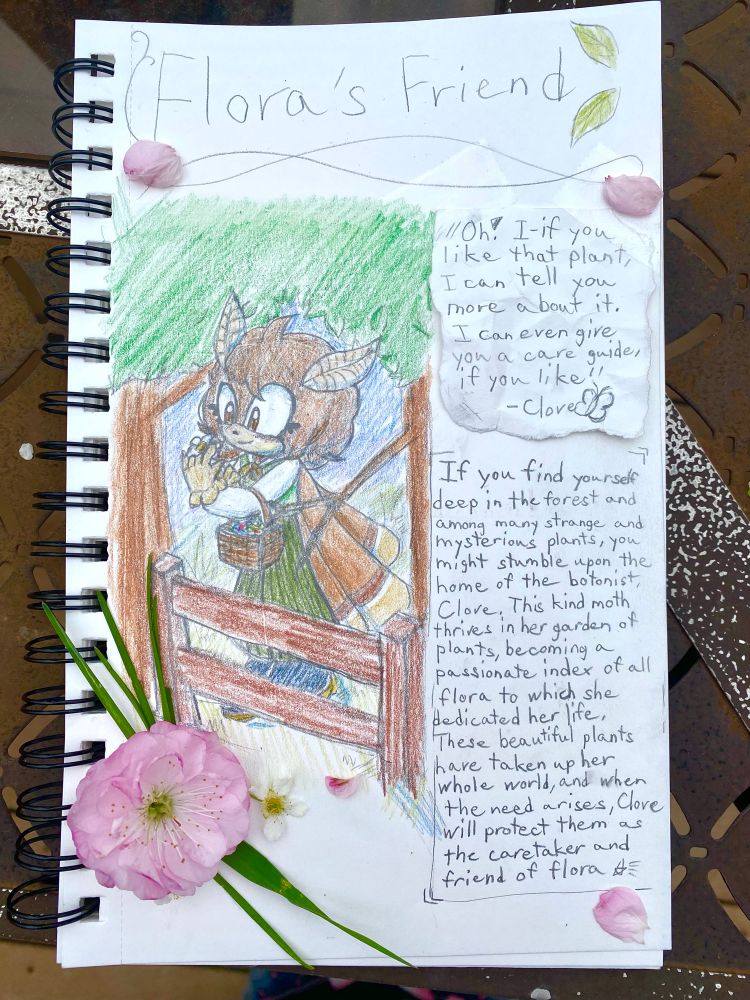 Flora's Friend
"Oh! I-if you
like that plant,
I can tell you
more about it.
I can even give
you a care guide,
if you like!"
-Clove
If you find yourself
deep in the forest and
among many strange and
mysterious plants, you
might stumble upon the
home of the botonist,
Clove. This kind moth
thrives in her garden of
plants, becoming a
passionate index of all
flora to which she
dedicated her life.
These beautiful plants
have taken up her
whole world, and when
the need arises, Clove
will protect them as
the caretaker and
friend of flora